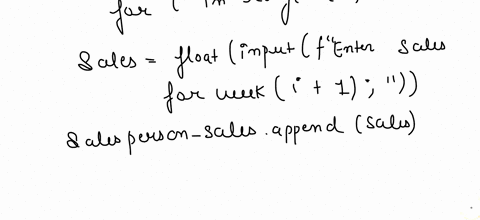 for (
Sales = float (input (f"Enter Sales
for week (i + 1) ; "))
Sales person_sales.append (Sales)